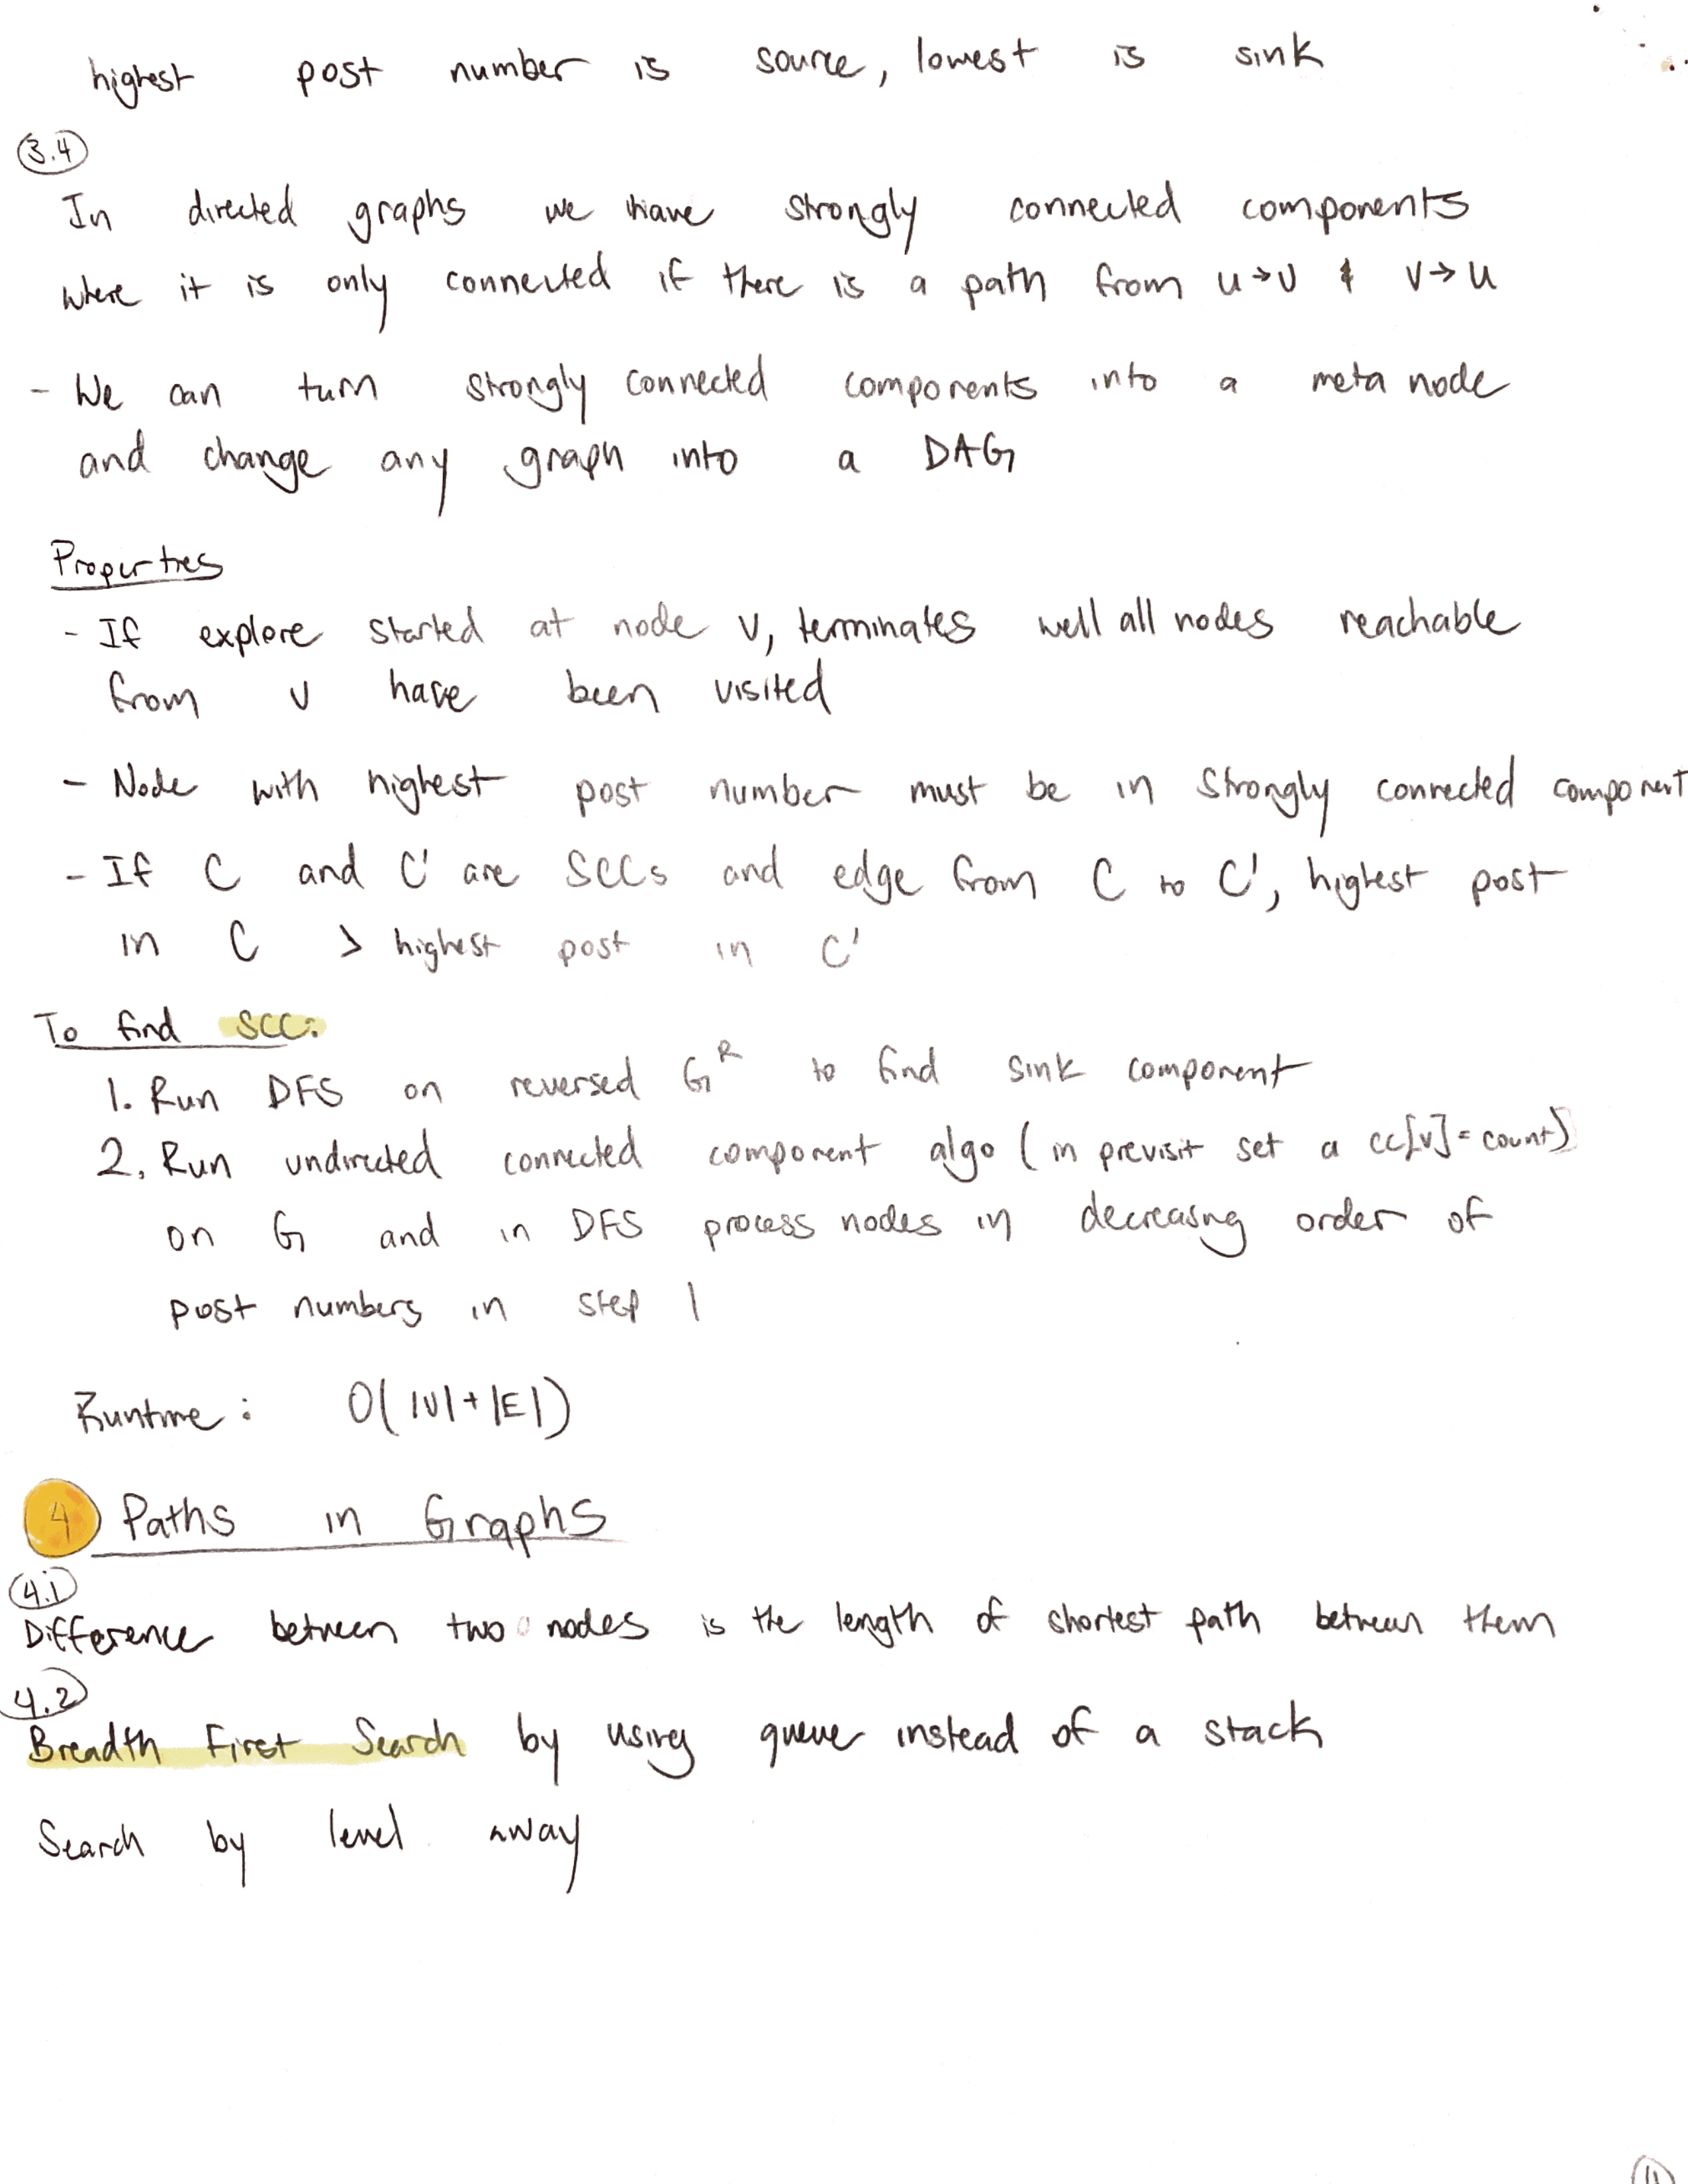 highest post number is source, lowest is sink
3.4
In directed graphs we have strongly connected components
where it is only connected if there is a path from u→v & v→u
- We can turn strongly connected components into a meta node
and change any graph into a DAG
Properties
- If explore started at node v, terminates well all nodes reachable
from v have been visited
- Node with highest post number must be in strongly connected component
- If C and C' are SCCs and edge from C to C', highest post
in C > highest post in C'
To find SCC:
1. Run DFS on reversed G^R to find sink component
2. Run undirected connected component algo (in previsit set a cc[v] = count)
on G and in DFS process nodes in decreasing order of
post numbers in step 1
Runtime: O(|V|+|E|)
4 Paths in Graphs
4.1
Difference between two nodes is the length of shortest path between them
4.2
Breadth First Search by using queue instead of a stack
Search by level away